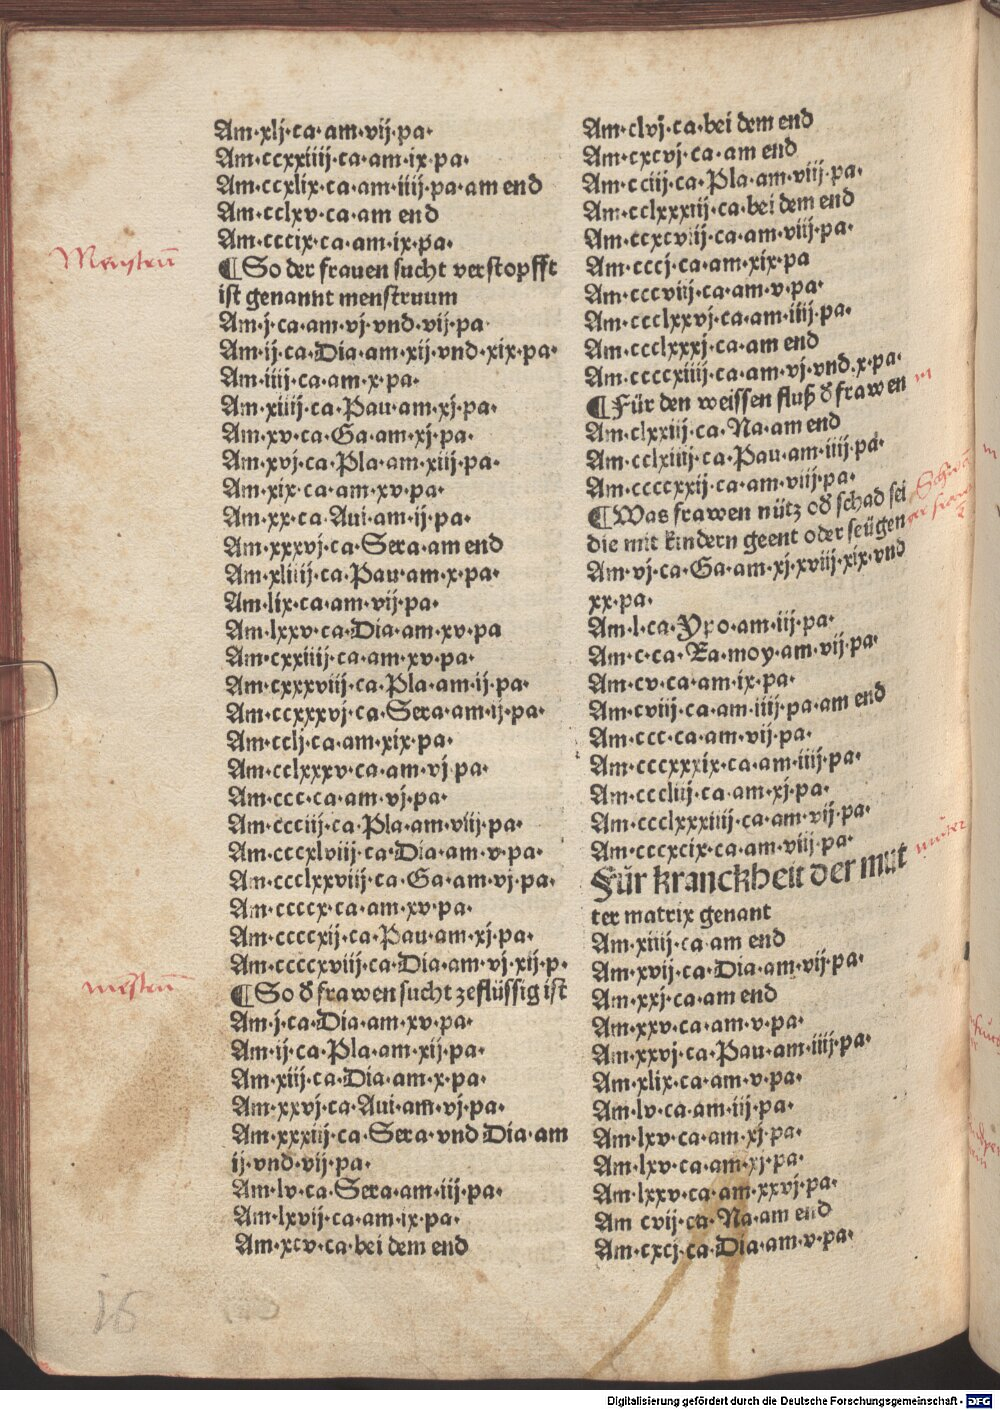 Am·xlj·ca·am·vij·pa·
Am·ccxxiiij·ca·am·ix·pa·
Am·ccxlix·ca·am·iiij·pa·am end
Am·cclxv·ca·am end
Am·cccix·ca·am·ix·pa·
¶So der frauen sucht verstopfft
ist genannt menstruum
Am·j·ca·am·vj·vnd·vij·pa·
Am·ij·ca·Dia·am·xij·vnd·xix·pa·
Am·iiij·ca·am·x·pa·
Am·xiiij·ca·Pau·am·xj·pa·
Am·xv·ca·Ga·am·xj·pa·
Am·xvj·ca·Pla·am·xiij·pa·
Am·xix·ca·am·xv·pa·
Am·xx·ca·Aui·am·ij·pa·
Am·xxxvj·ca·Sera·am end
Am·xliiij·ca·Pau·am·x·pa·
Am·lix·ca·am·vij·pa·
Am·lxxv·ca·Dia·am·xv·pa
Am·cxxiiij·ca·am·xv·pa·
Am·cxxxviij·ca·Pla·am·ij·pa·
Am·ccxxxvj·ca·Sera·am·ij·pa·
Am·cclj·ca·am·xix·pa·
Am·cclxxxv·ca·am·vj·pa·
Am·ccc·ca·am·vj·pa·
Am·ccciij·ca·Pla·am·viij·pa·
Am·cccxlviij·ca·Dia·am·v·pa·
Am·ccclxxviij·ca·Ga·am·vj·pa·
Am·ccccx·ca·am·xv·pa·
Am·ccccxij·ca·Pau·am·xj·pa·
Am·ccccxviij·ca·Dia·am·vj·xij·p·
¶So ď frawen sucht zeflüssig ist
Am·j·ca·Dia·am·xv·pa·
Am·ij·ca·Pla·am·xij·pa·
Am·xiij·ca·Dia·am·x·pa·
Am·xxvj·ca·Aui·am·vj·pa·
Am·xxxiij·ca·Sera·vnd Dia·am
ij·vnd·vij·pa·
Am·lv·ca·Sera·am·iij·pa·
Am·lxvij·ca·am·ix·pa·
Am·xcv·ca·bei dem end
Am·clvj·ca·bei dem end
Am·cxcvj·ca·am end
Am·cciij·ca·Pla·am·viij·pa·
Am·cclxxxiij·ca·bei dem end
Am·ccxcviij·ca·am·viij·pa·
Am·cccj·ca·am·xix·pa
Am·cccviij·ca·am·v·pa·
Am·ccclxxvj·ca·am·iiij·pa·
Am·ccclxxxj·ca·am end
Am·ccccxiiij·ca·am·vj·vnd·x·pa·
¶Für den weissen fluß ď frawen
Am·clxxiij·ca·Na·am end
Am·cclxiiij·ca·Pau·am·iiij·pa·
Am·ccccxxij·ca·am·viij·pa·
¶Was frawen nütz oď schad sei
die mit kindern geent oder seügen
Am·vj·ca·Ga·am·xj·xviij·xix·vnd
xx·pa·
Am·l·ca·Ypo·am·iij·pa·
Am·c·ca·Ra·moy·am·vij·pa·
Am·cv·ca·am·ix·pa·
Am·cviij·ca·am·iiij·pa·am end
Am·ccc·ca·am·vij·pa·
Am·cccxxxix·ca·am·iiij·pa·
Am·cccliij·ca·am·xj·pa·
Am·ccclxxxiiij·ca·am·vij·pa·
Am·cccxcix·ca·am·viij·pa·
Für kranckheit der mut
ter matrix genant
Am·xiiij·ca·am end
Am·xvij·ca·Dia·am·vij·pa·
Am·xxj·ca·am end
Am·xxv·ca·am·v·pa·
Am·xxvj·ca·Pau·am·iiij·pa·
Am·xlix·ca·am·v·pa·
Am·lv·ca·am·iij·pa·
Am·lxv·ca·am·xj·pa·
Am·lxv·ca·am·xj·pa·
Am·lxxv·ca·am·xxvj·pa·
Am cvij·ca·Na·am end
Am·cxcj·ca·Dia·am·v·pa·
Digitalisierung gefördert durch die Deutsche Forschungsgemeinschaft - DFG